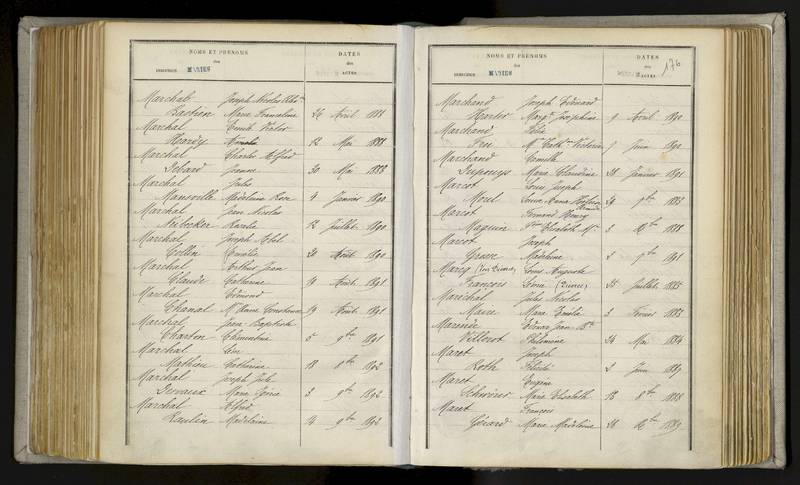 NOMS ET PRÉNOMS
des
MARIÉS
DATES
des
ACTES
Marchal Joseph Nicolas
Bastien Marie Françoise 26 Avril 1888
Marchal Victor
Hardy Amelie 12 Mai 1888
Marchal Charles Alfred
Jeanne 30 Mai 1888
Marchal Jules
Mansuelle Madeleine Rose 4 Janvier 1890
Marchal Jean Nicolas
Rosalie 12 Juillet 1890
Marchal Joseph Abel
Collin Emélie 30 Août 1890
Marchal Arthur Jean
Claude Catherine 19 Août 1891
Marchal Edmond
Chanal Mie Marie Constance 29 Août 1891
Marchal Jean Baptiste
Charton Clémentine 5 9bre 1891
Marchal Léon
Mathieu Catherine 18 8bre 1892
Marchal Joseph Jules
Marie 3 9bre 1892
Marchal Alfred
Raulin Madeleine 14 9bre 1892
NOMS ET PRÉNOMS
des
MARIÉS
DATES
des
ACTES
176
Marchand Joseph Edouard
Harter Margte Joséphine 9 Avril 1890
Marchand Félix
Mie Cathne Victorine 7 Juin 1890
Marchand Camille
Duponys Marie Claudine 28 Janvier 1891
Marcot Louis Joseph
Moul Louise Anna 29 7bre 1883
Marcot Fernand Henry
Maguin Elisabeth Mie 3 10bre 1888
Marcot Joseph
Madeleine 3 7bre 1891
Marcq Louis Auguste
François (Divorce) 25 Juillet 1885
Maréchal Jules Nicolas
Maire Marie Emélie 3 Février 1883
Edouard Jean Bte
Villerot Philomène 24 Mai 1884
Maret Joseph
Roth 3 Juin 1889
Maret Eugène
Schweirer Marie Elisabeth 13 8bre 1888
Maret François
Gérard Marie Madeleine 28 10bre 1889